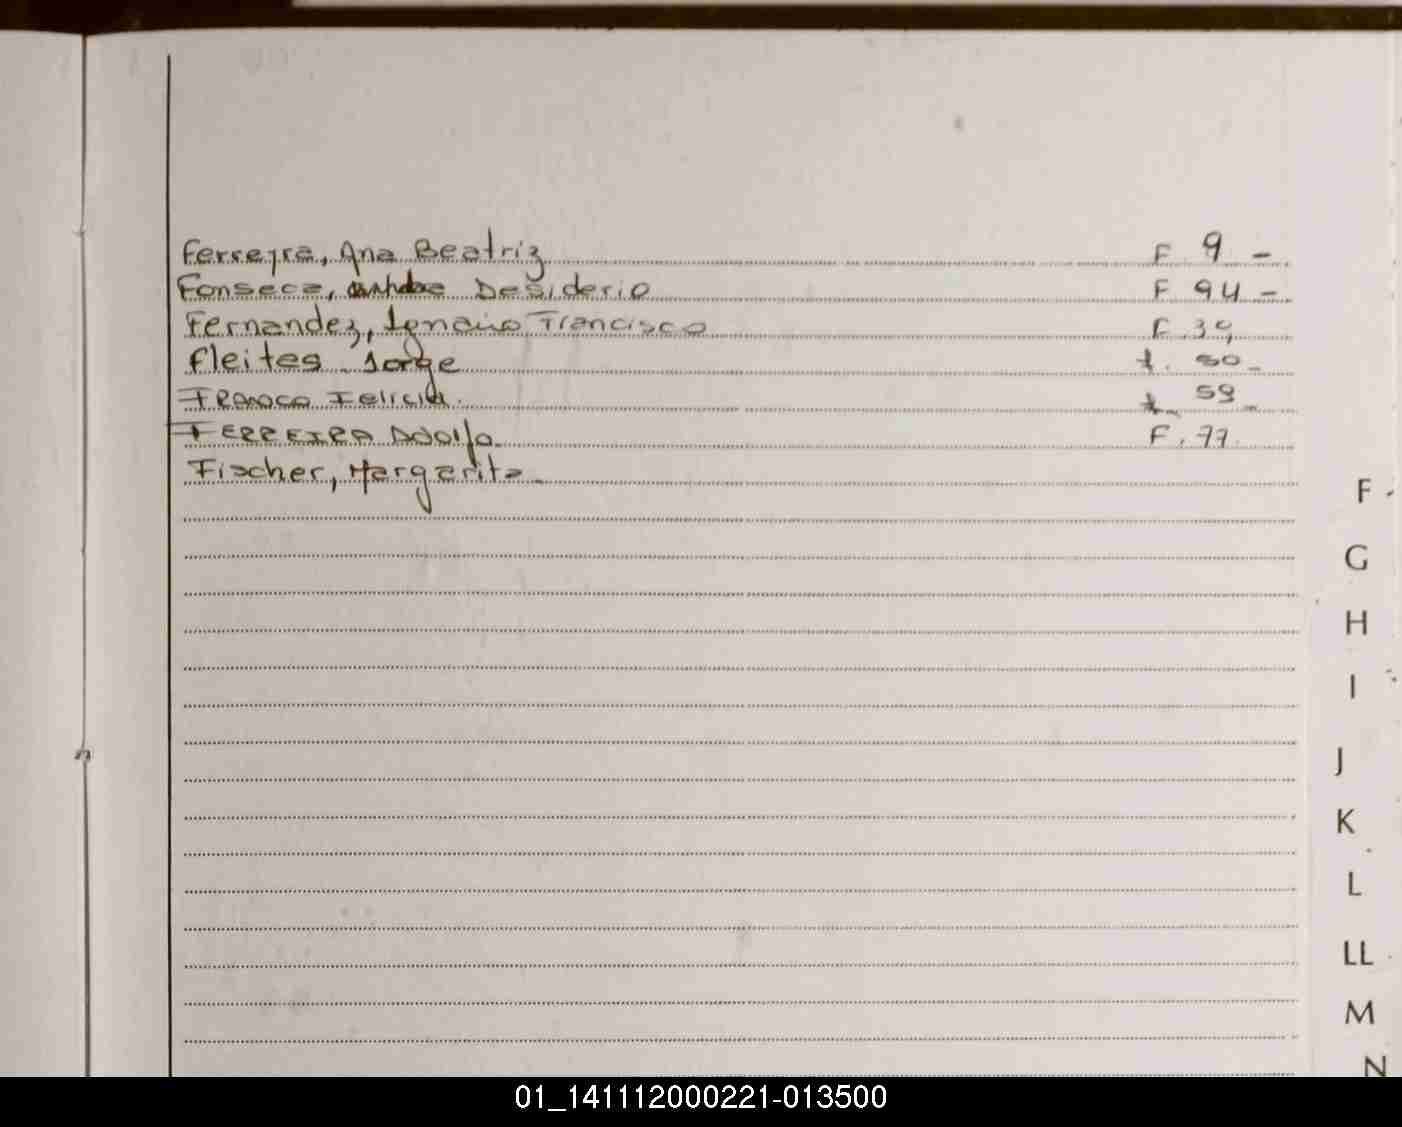 Ferreyra, Ana Beatriz F 9 -
Fonseca, Desiderio F 94 -
Fernandez, Ignacio Francisco F. 39
Fleites Jorge f. 50 -
Franco Felicia. f. 59 -
FERREIRA Adolfo. F. 77.
Fischer, Margarita
F
G
H
I
J
K
L
LL
M
N
01_141112000221-013500